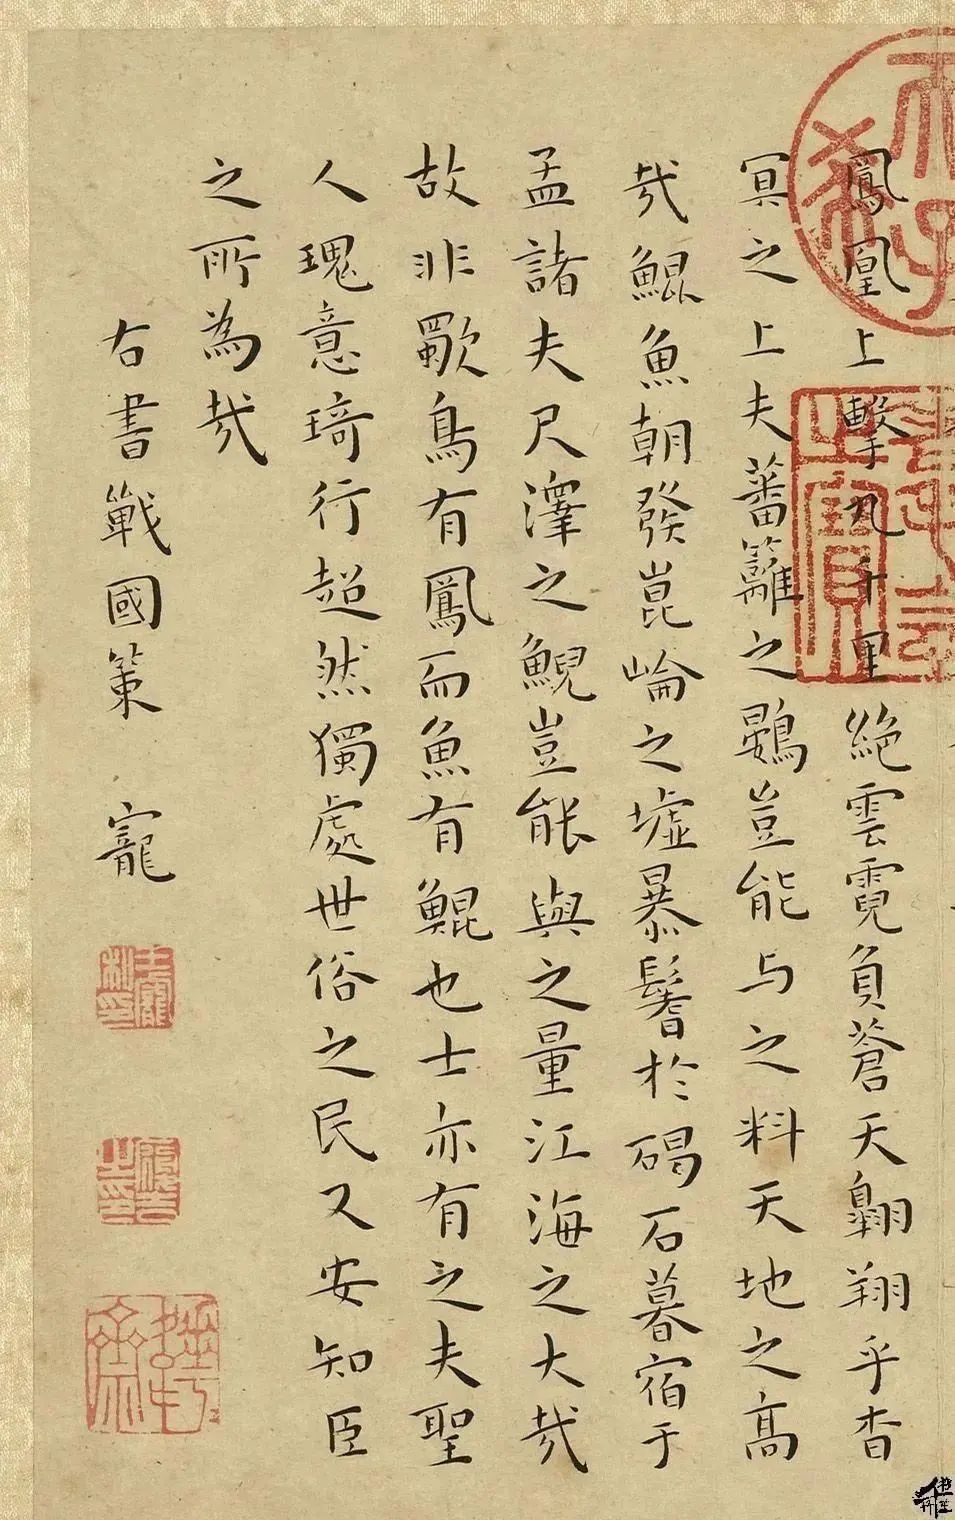 鳳凰上擊九千里絕雲霓負蒼天翺翔乎杳
冥之上夫蕃籬之鷃豈能与之料天地之高
哉鯤魚朝發崑崙之墟暴鬐於碣石暮宿于
孟諸夫尺澤之鯢豈能與之量江海之大哉
故非獨鳥有鳳而魚有鯤也士亦有之夫聖
人瑰意琦行超然獨處世俗之民又安知臣
之所為哉
右書戰國策 寵